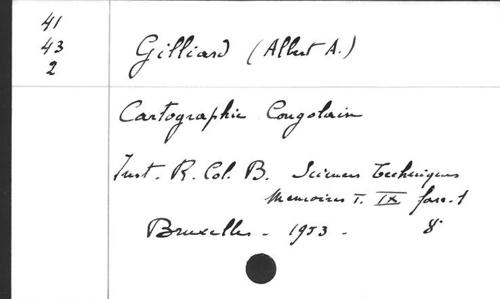 41
43
2
Gilliard (Albert A.)
Cartographie Congolain
Inst. R. Col. B. Sciences Techniques
Memoires T. IX fasc. 1
Bruxelles - 1953 - 8°